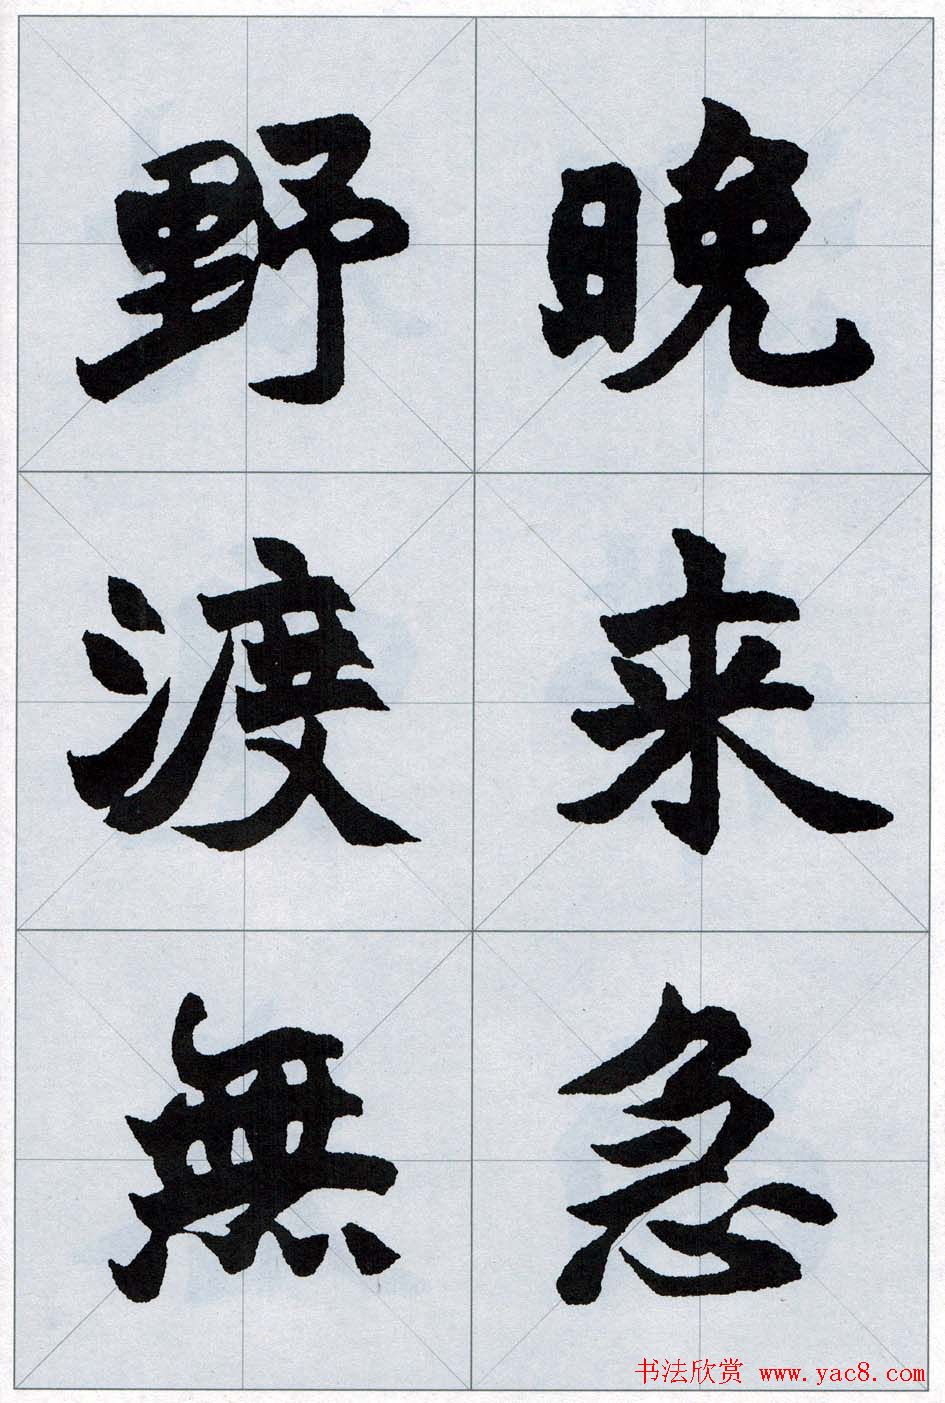 晚来急
野渡無
书法欣赏 www.yac8.com